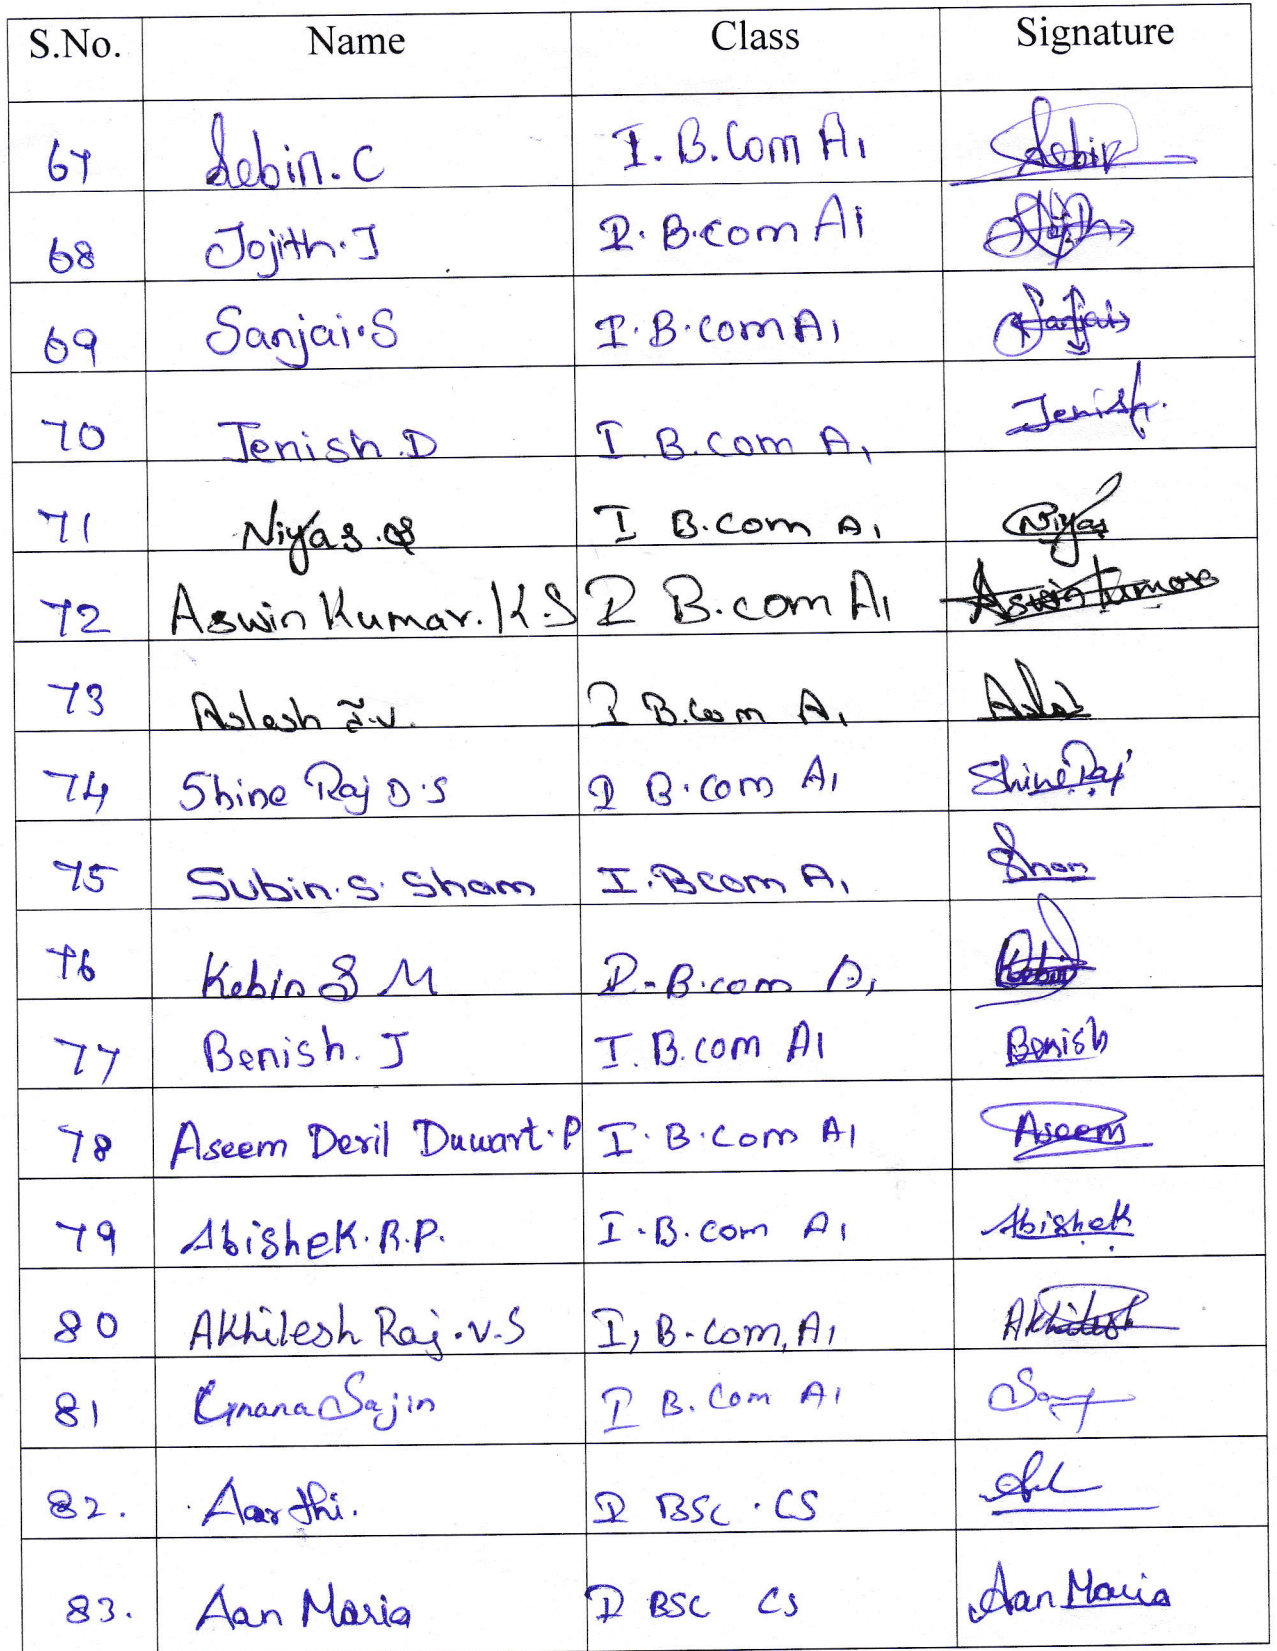 S.No. Name Class Signature
67 Sebin. C I. B. Com A1 Sebin
68 Jojith. J I. B. com A1 Jojith
69 Sanjai. S I. B. com A1 Sanjai
70 Jenish. D I B. com A1 Jenish.
71 Niyas. I B. com A1 Niyas
72 Aswin Kumar. K. S I B. com A1 Aswin Kumar
73 I B. com A1
74 Shine Raj D. S I B. com A1 Shine Raj
75 Subin. S. Sham I. Bcom A1 Sham
76 Kebin S M I - B. com A1 Kebin
77 Benish. J I. B. com A1 Benish
78 Aseem Deril Duwart. P I. B. Com A1 Aseem
79 Abishek. R. P. I. B. com A1 Abishek
80 Akhilesh Raj. V. S I, B. com, A1 Akhilesh
81 Gnana Sajin I B. Com A1
82. Aarthi. I BSC . CS
83. Aan Maria I BSC CS Aan Maria